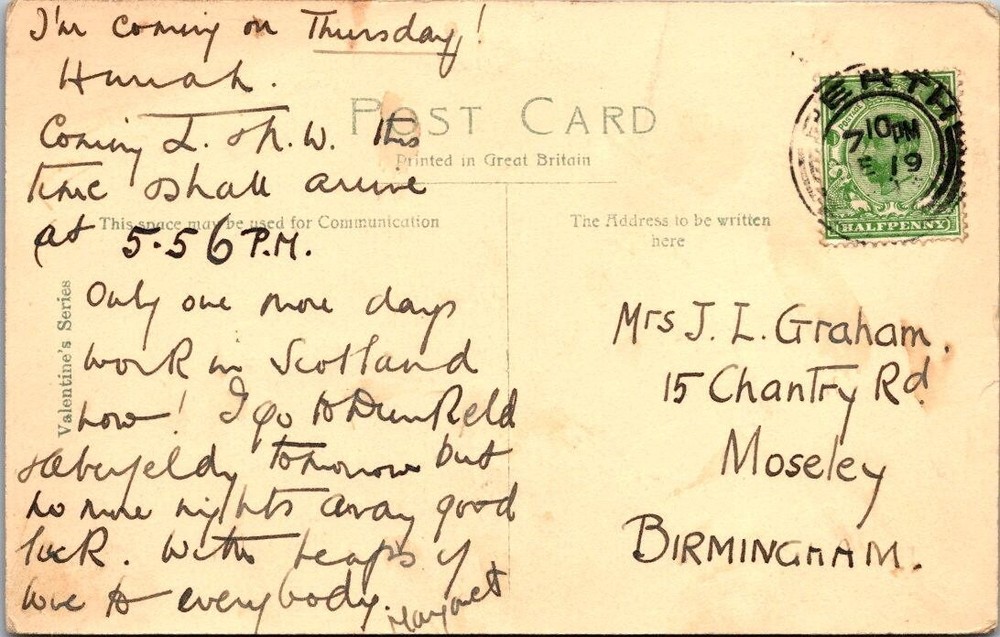 I'm coming on Thursday!
Hurrah.
Coming L. & N.W. this
time & shall arrive
at 5-56 P.M.
Only one more days
work in Scotland
now! I go to Dunkeld
& Aberfeldy tomorrow but
no more nights away good
luck. With heaps of
love to everybody. Margaret
POST CARD
Printed in Great Britain
This space may be used for Communication
The Address to be written
here
Valentine's Series
PERTH
7 10 PM
19
HALFPENNY
Mrs J. L. Graham.
15 Chantry Rd.
Moseley
BIRMINGHAM.